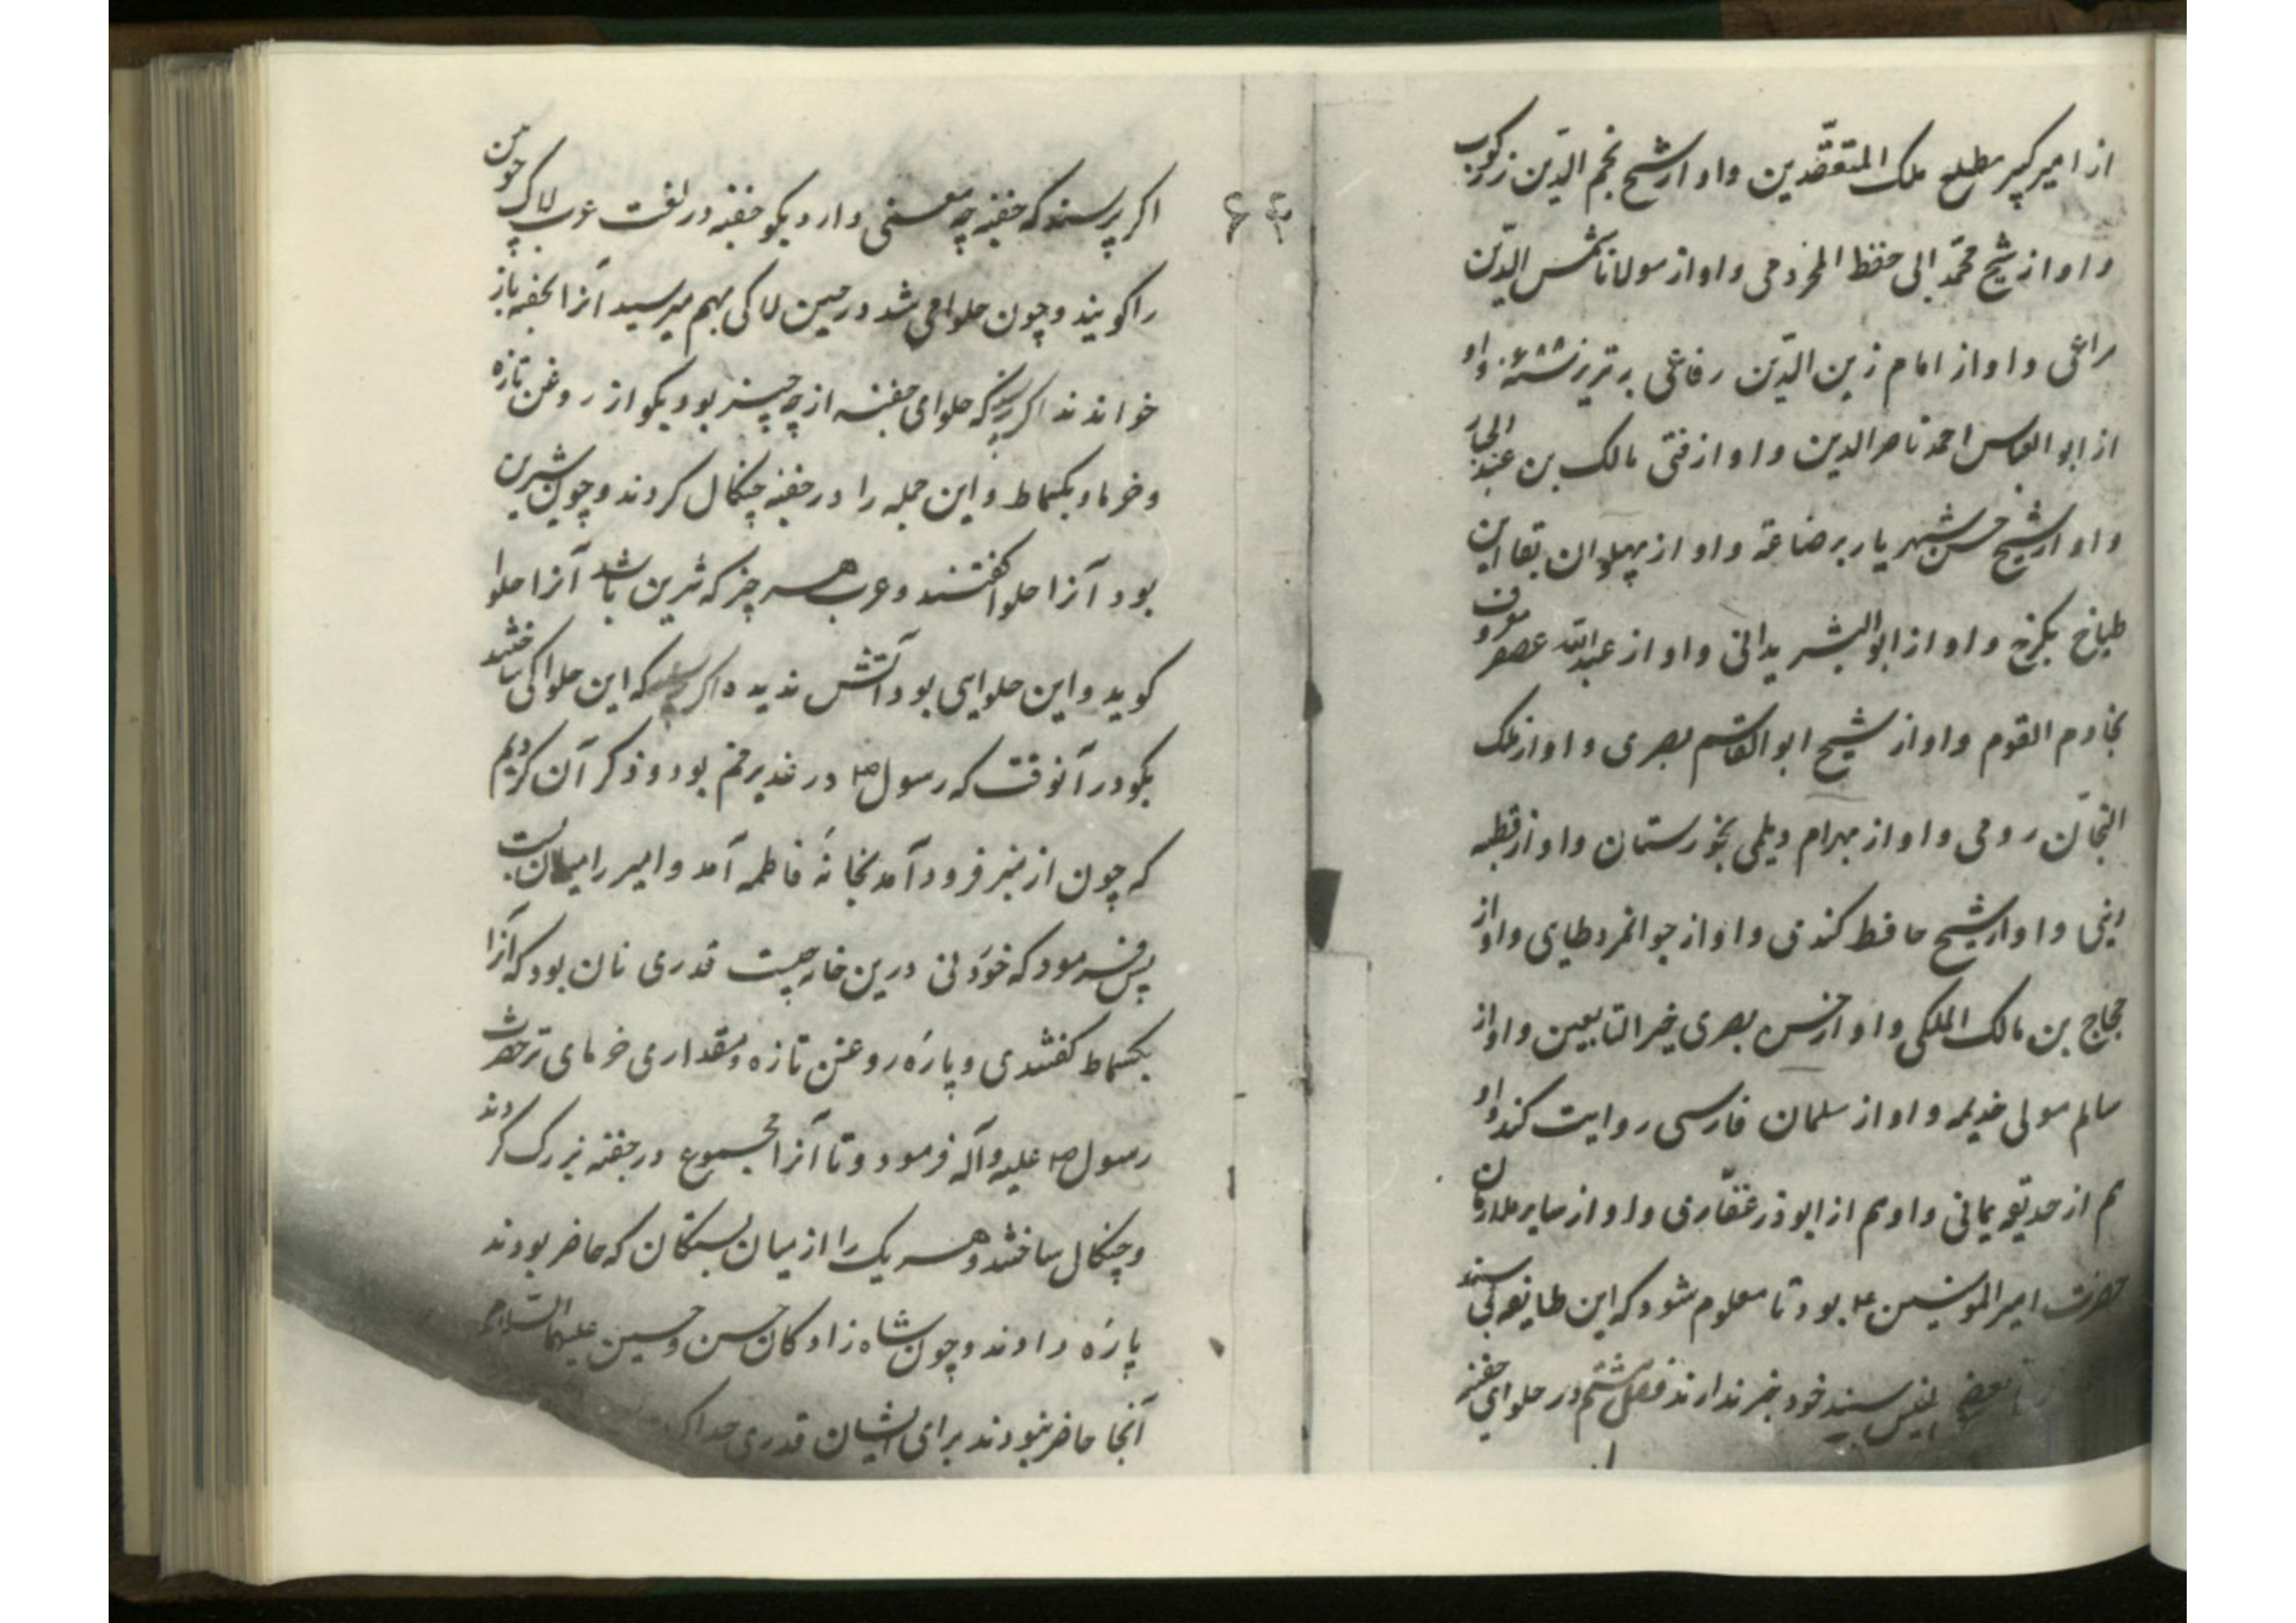 از امیر کبیر مطلع ملک المتعقّدین و او از شیخ نجم الدّین زرکوب
و او از شیخ محمّد ابی حفظ المخزومی و او از مولانا شمس الدّین
راعی و او از امام زین الدّین رفاعی بر تربز و او
از ابو العباس احمد ناصر الدین و او از فتی مالک بن عبد الجبار
و او از شیخ حسن شهریار برضاعه و او از پهلوان بقا این
طباخ بکرخ و او از ابو البشر یدانی و او از عبد اللّه عصفر معروف
بخادم القوم و او از شیخ ابو القاسم بصری و او از ملک
التجّان رومی و او از بهرام دیلمی بخورستان و او از قطبه
اینی و او از شیخ حافظ کندی و او از جوانمرد طایی و او از
حجاج بن مالک الملکی و او از حسن بصری خیر التابعین و او از
سالم مولی خدیمه و او از سلمان فارسی روایت کند و او
هم از حدیقه یمانی و او هم از ابوذر غفّاری و او از سایر ملازمان
حضرت امیر المومنین ع بود تا معلوم شود که این طایفه بی سند
بعضی سند خود خبر ندارند فصل ششم در حلوای جفنه
۶۴
اکر پرسند که جفنه چه معنی دارد بکو جفنه در لغت عرب لاک چوبین
را کویند و چون حلوا می شد در حین لاکی بهم میرسید آنرا بجفنه باز
خواندند اکر پرسند که حلوای جفنه از چه چیز بود بکو از روغن تازه
و خرما و بکسماط و این جمله را در جفنه چنکال کردند و چون شیرین
بود آنرا حلوا کفتند و عرب هر چیز که شیرین باشد آنرا حلوا
کوید و این حلوایی بود آتش ندیده اکر پرسند که این حلوا کی ساختند
بکو در آنوقت که رسول ص در غدیر خم بود و ذکر آن کردیم
که چون از منبر فرود آمد بخانهٔ فاطمه آمد و امیر را میان بست
پس فرمود که خوردنی درین خانه چیست قدری نان بود که آنرا
بکسماط کفتندی و پارهٔ روغن تازه و مقداری خرمای تر حضرت
رسول ص علیه و آله فرمود و تا آنرا مجموع در جفنه بزرک کردند
و چنکال ساختند و هر یک را از میان بستکان که حاضر بودند
پارهٔ دادند و چون شاه زادکان حسن و حسین علیهما السّلام
آنجا حاضر نبودند برای ایشان قدری جدا